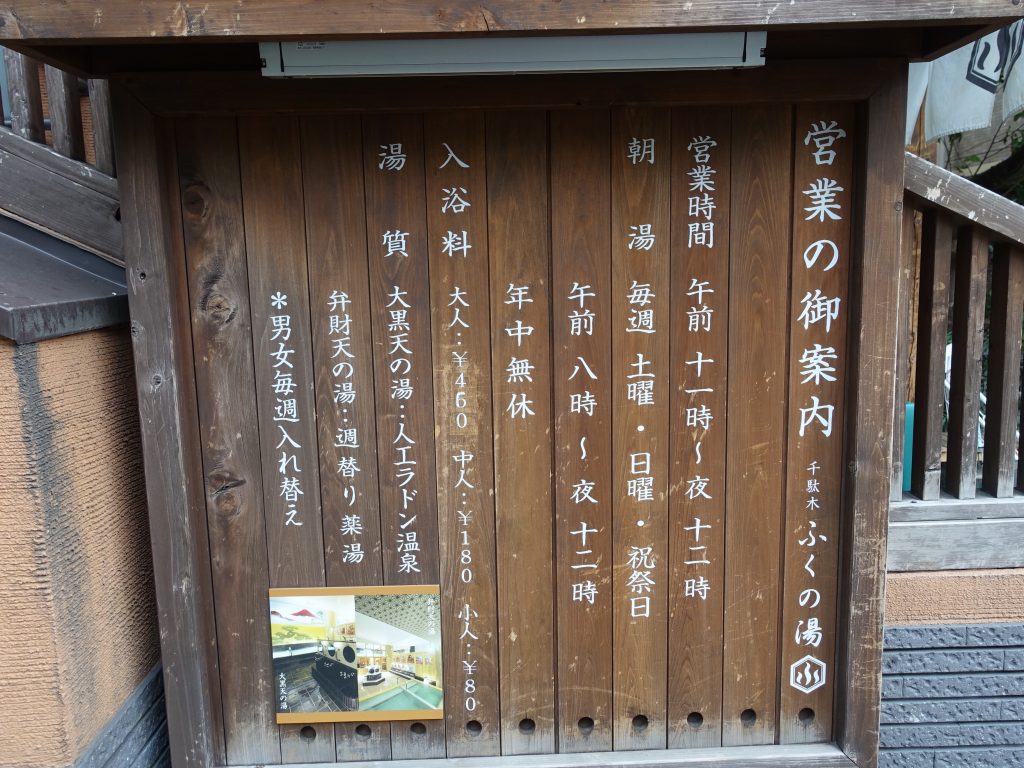 営業の御案内 千駄木 ふくの湯 ふ
営業時間 午前 十一時〜夜 十二時
朝湯 毎週 土曜・日曜・祝祭日
午前 八時〜夜 十二時
年中無休
入浴料 大人:¥460 中人:¥180 小人:¥80
湯質 大黒天の湯:人工ラドン温泉
弁財天の湯:週替り薬湯
*男女毎週入れ替え
弁財天の湯
大黒天の湯